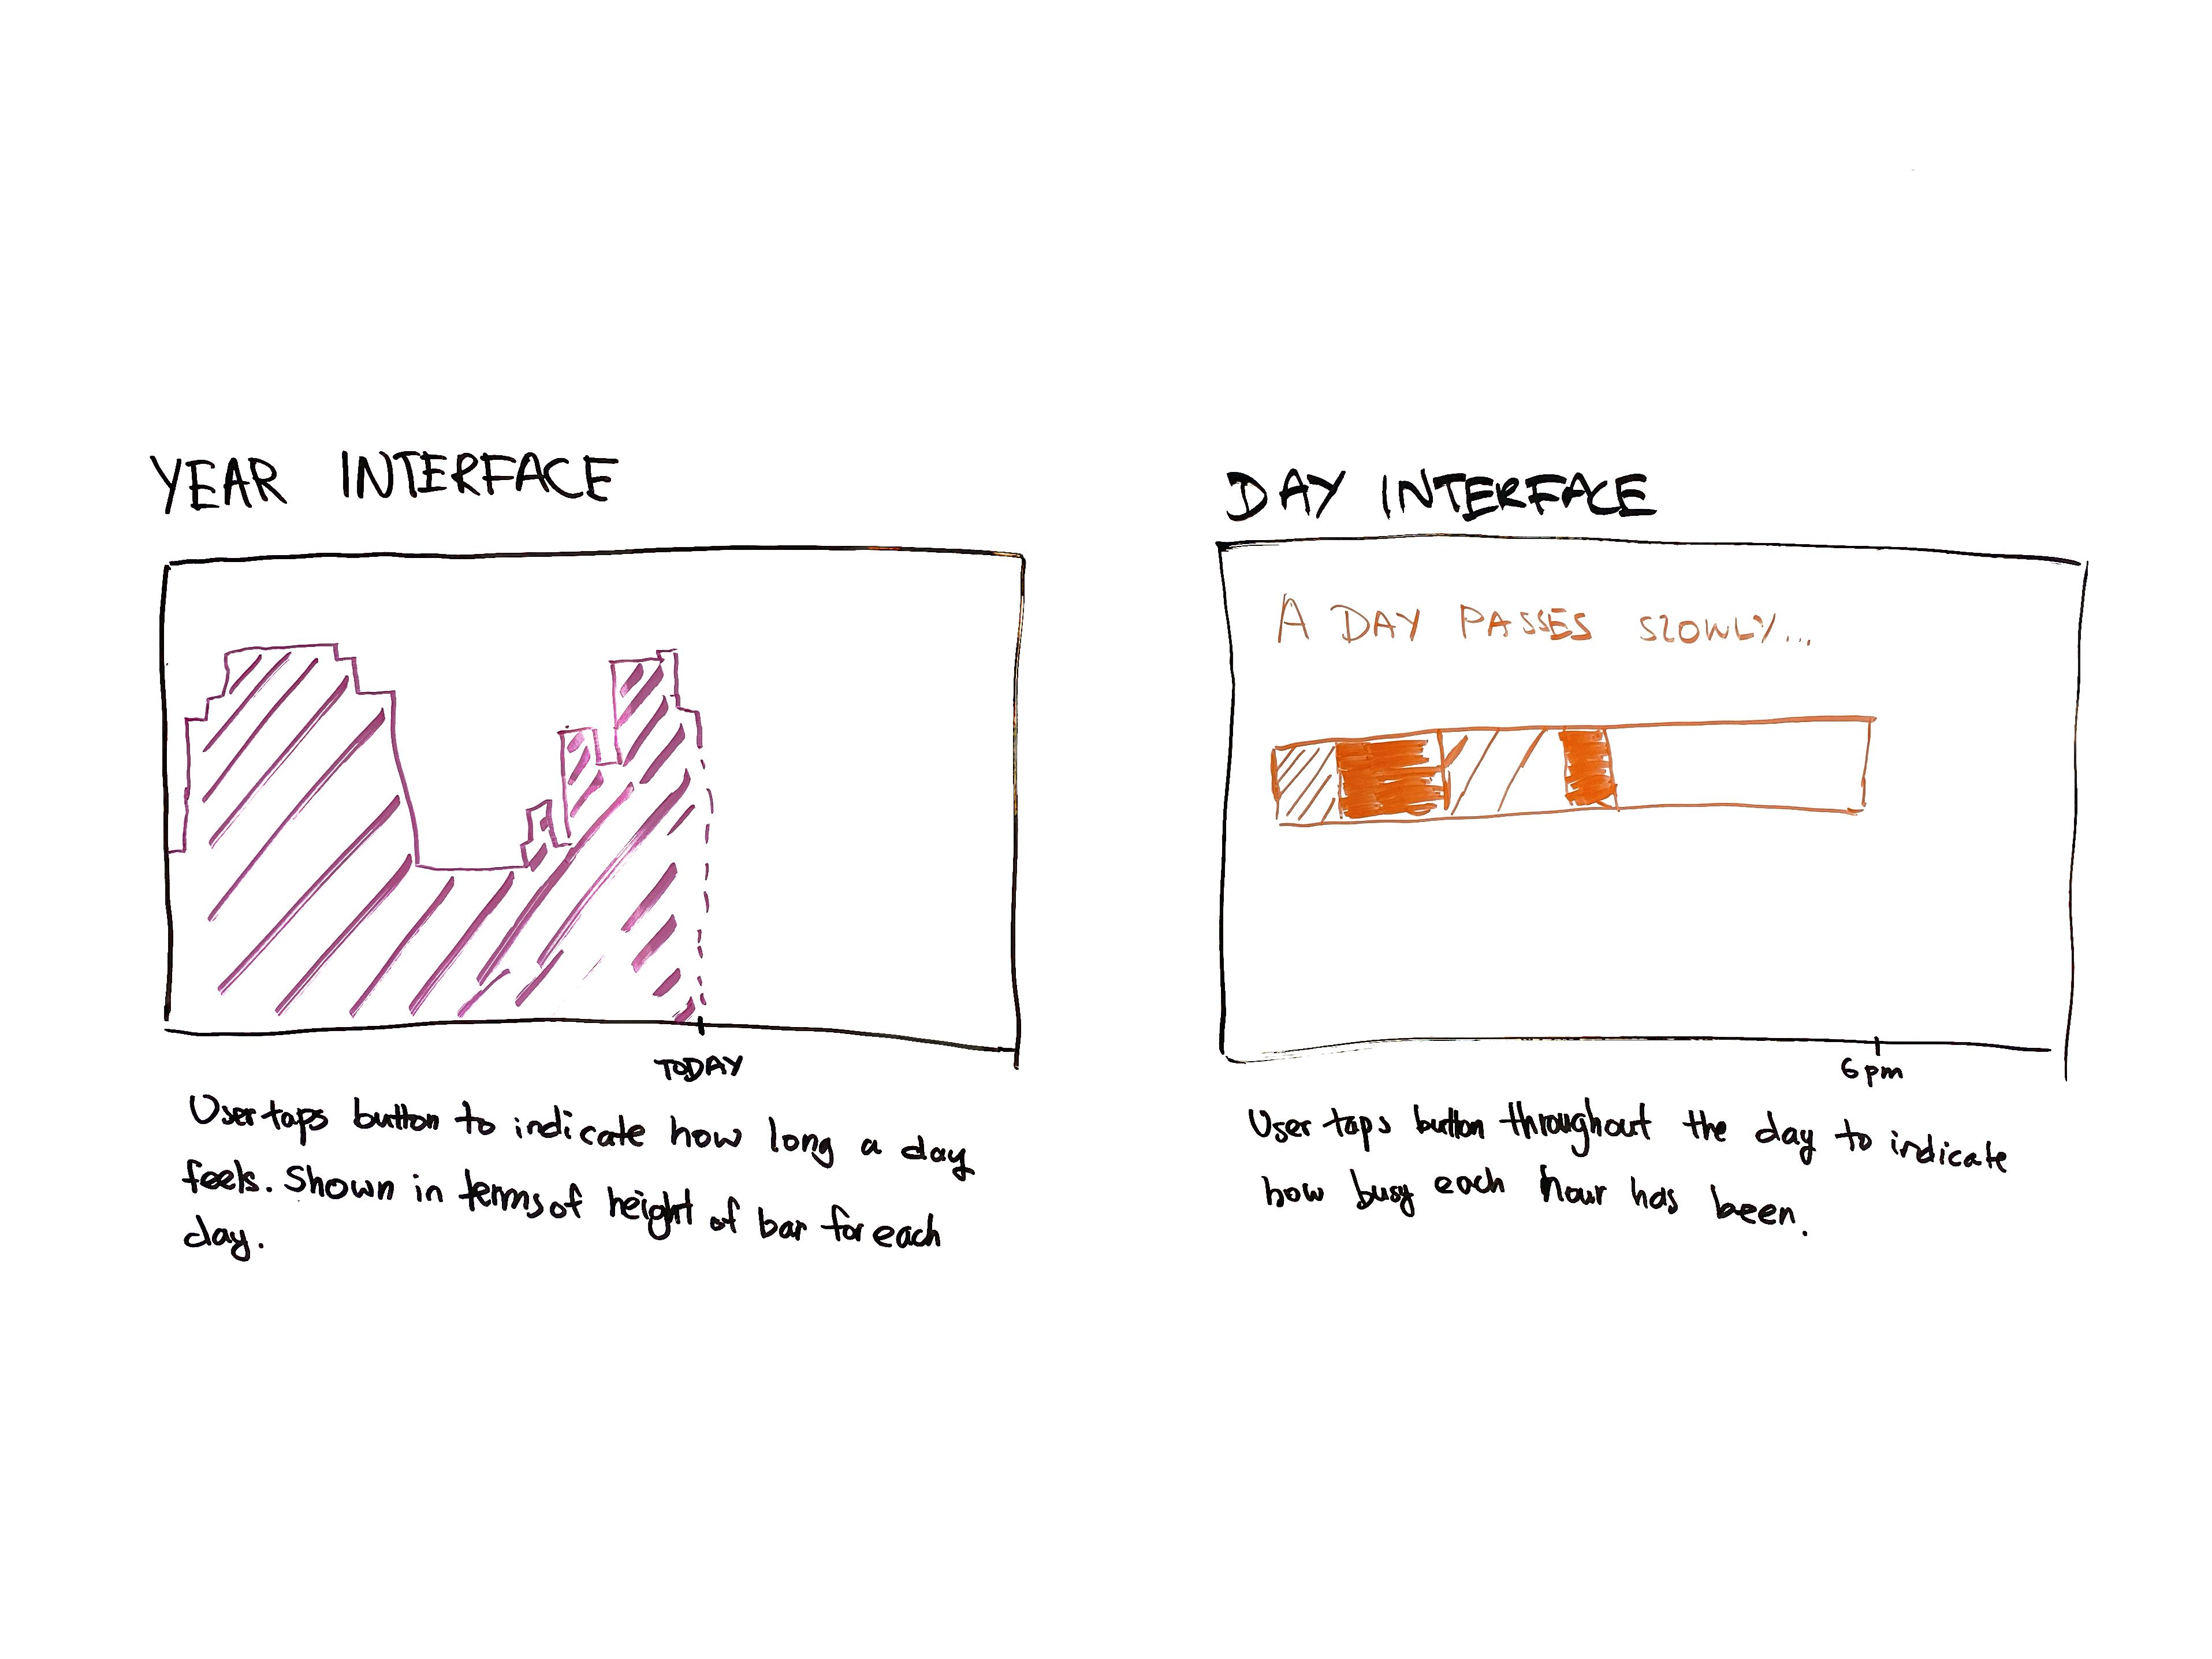 YEAR INTERFACE
TODAY
User taps button to indicate how long a day
feels. Shown in terms of height of bar for each
day.
DAY INTERFACE
A DAY PASSES SLOWLY...
6pm
User taps button throughout the day to indicate
how busy each hour has been.